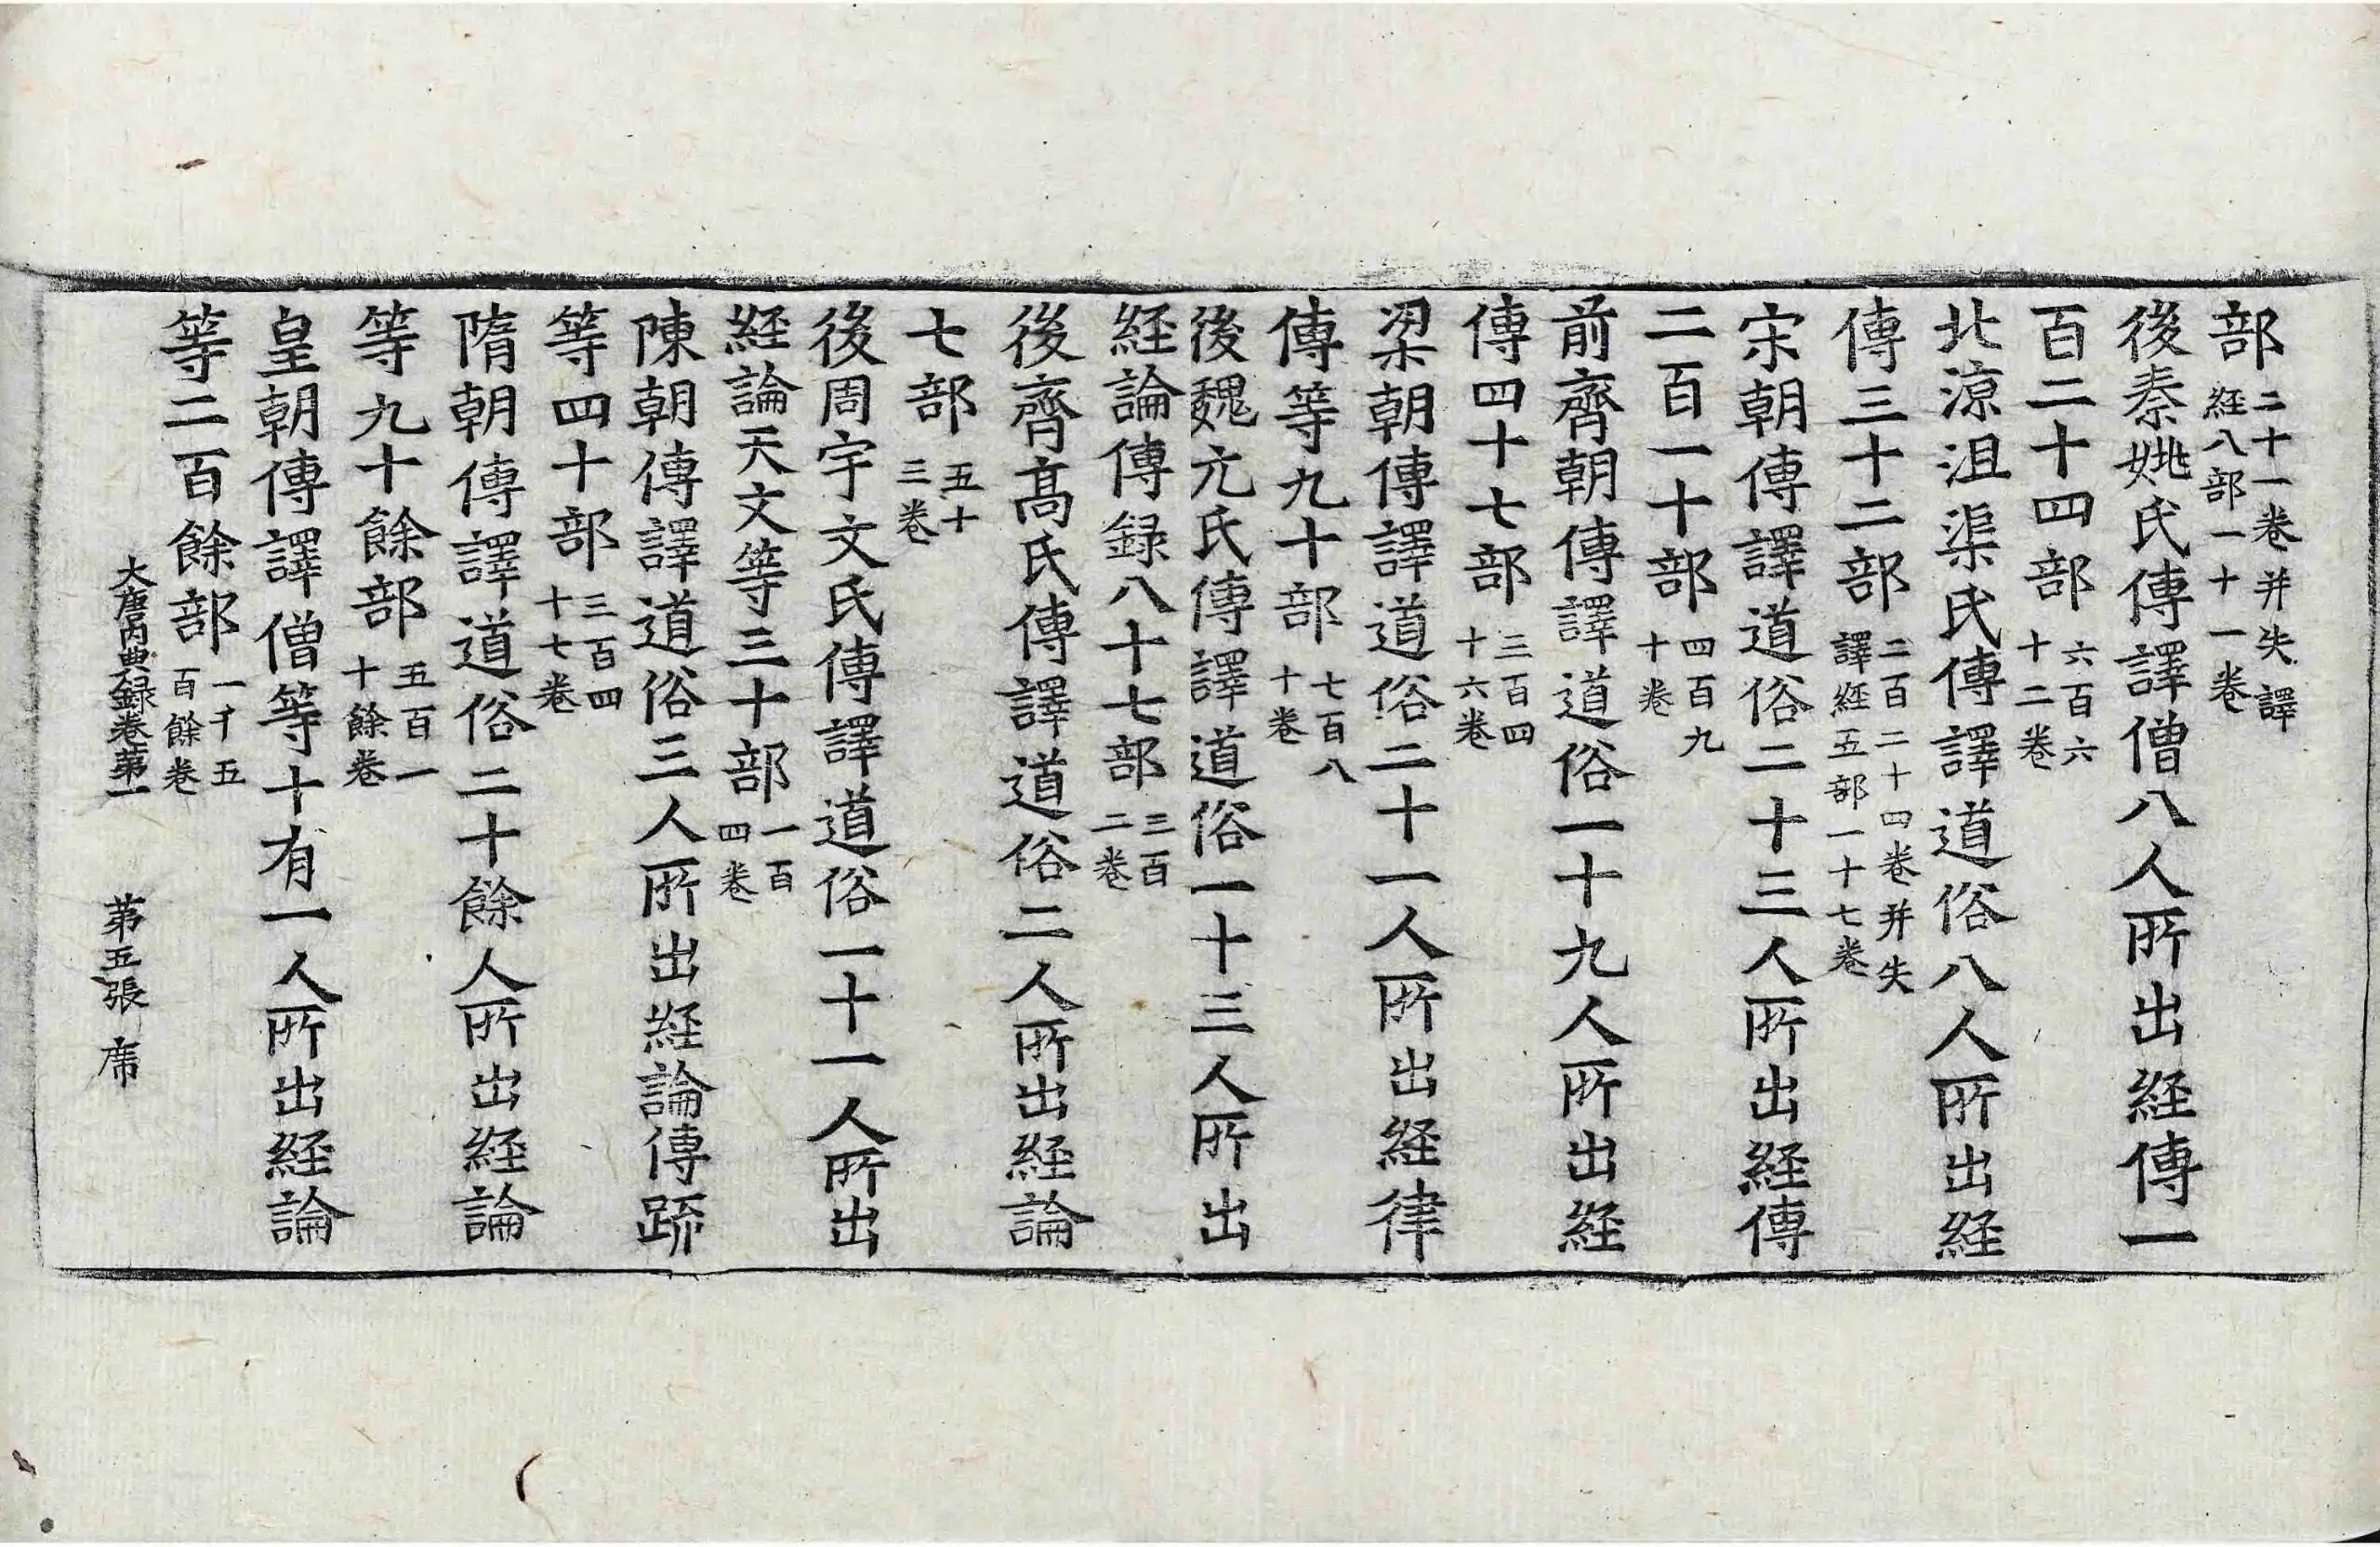 部二十一卷并失譯經八部一十一卷
後秦姚氏傳譯僧八人所出經傳一
百二十四部六百六十二卷
北涼沮渠氏傳譯道俗八人所出經
傳三十二部二百二十四卷并失譯經五部一十七卷
宋朝傳譯道俗二十三人所出經傳
二百一十部四百九十卷
前齊朝傳譯道俗一十九人所出經
傳四十七部三百四十六卷
梁朝傳譯道俗二十一人所出經律
傳等九十部七百八十卷
後魏元氏傳譯道俗一十三人所出
經論傳録八十七部三百二卷
後齊髙氏傳譯道俗二人所出經論
七部五十三卷
後周宇文氏傳譯道俗一十一人所出
經論天文等三十部一百四卷
陳朝傳譯道俗三人所出經論傳䟽
等四十部三百四十七卷
隋朝傳譯道俗二十餘人所出經論
等九十餘部五百一十餘卷
皇朝傳譯僧等十有一人所出經論
等二百餘部一千五百餘卷
大唐内典録卷第一 第五張 席